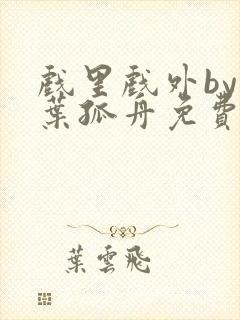 戲里戲外by
葉孤舟免費
葉雲飛